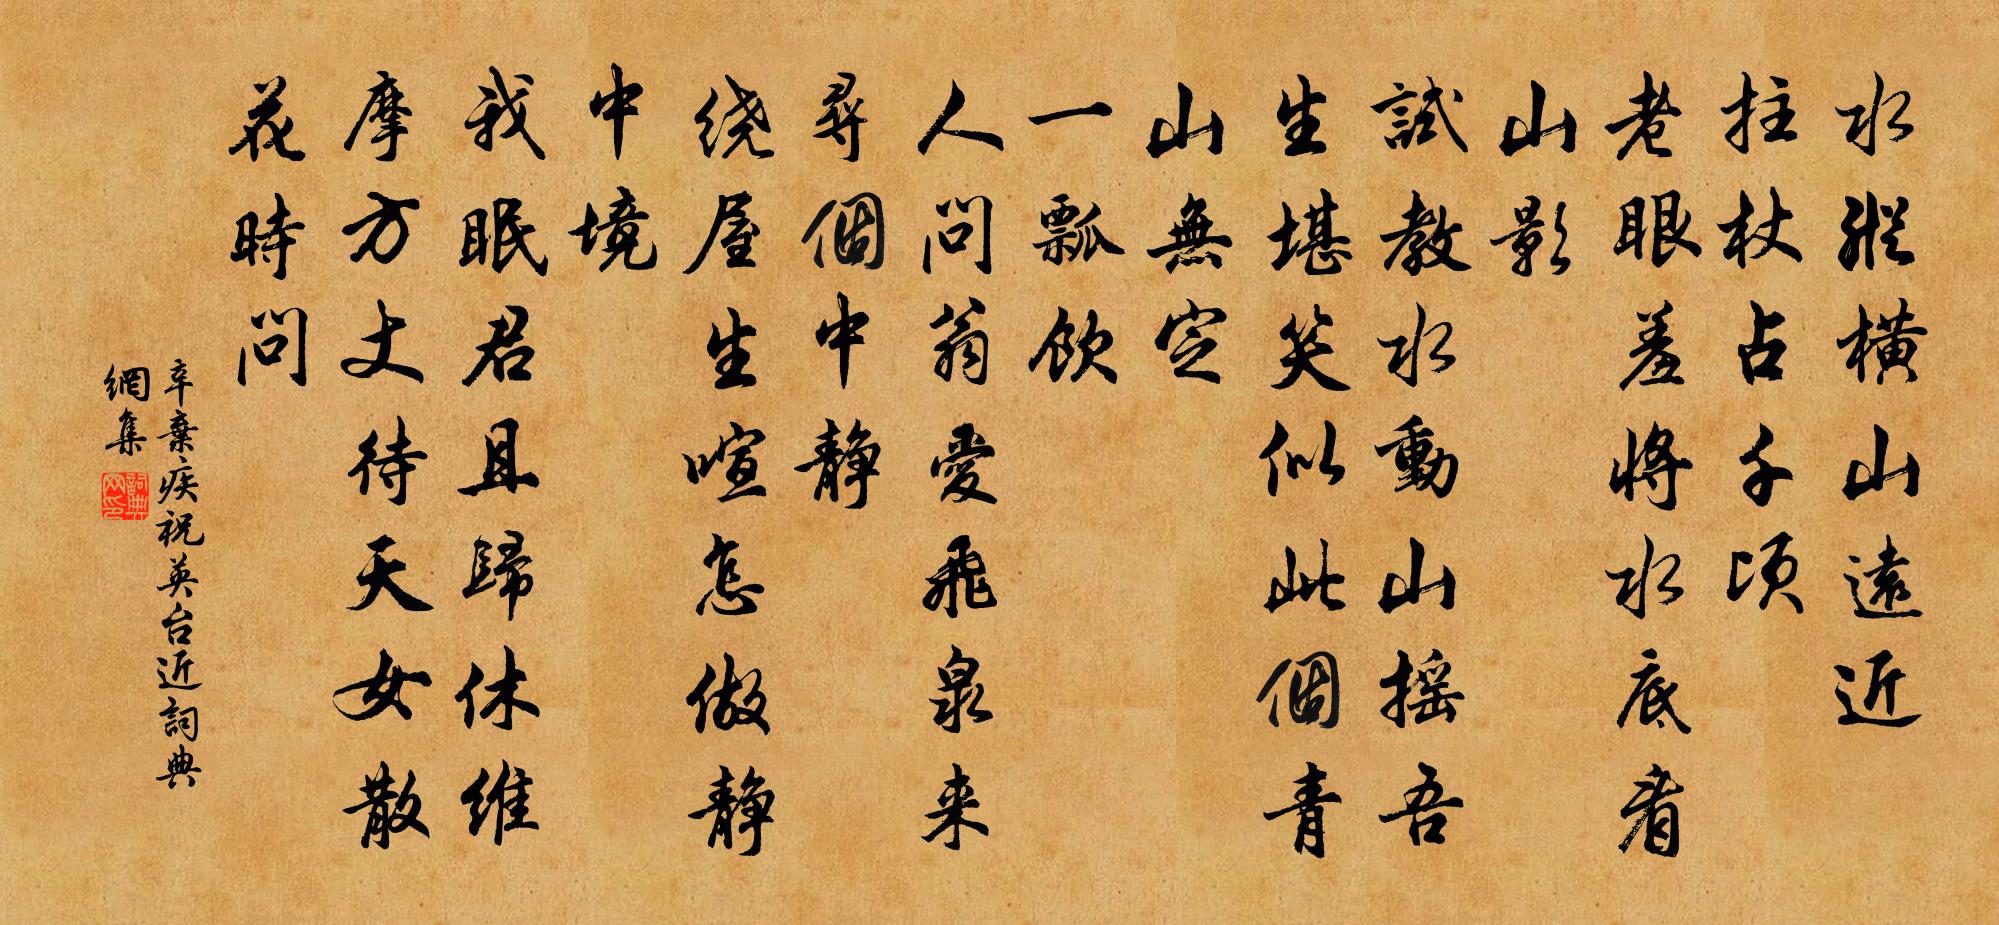 水縱橫山遠近
拄杖占千頃
老眼羞將水底看
山影
試教水動山摇吾
生堪笑似此個青
山無定
一瓢飲
人問翁愛飛泉来
尋個中靜
绕屋生喧怎做靜
中境
我眠君且歸休维
摩方丈待天女散
花時問
辛棄疾祝英台近詞典
網集
詞典网印